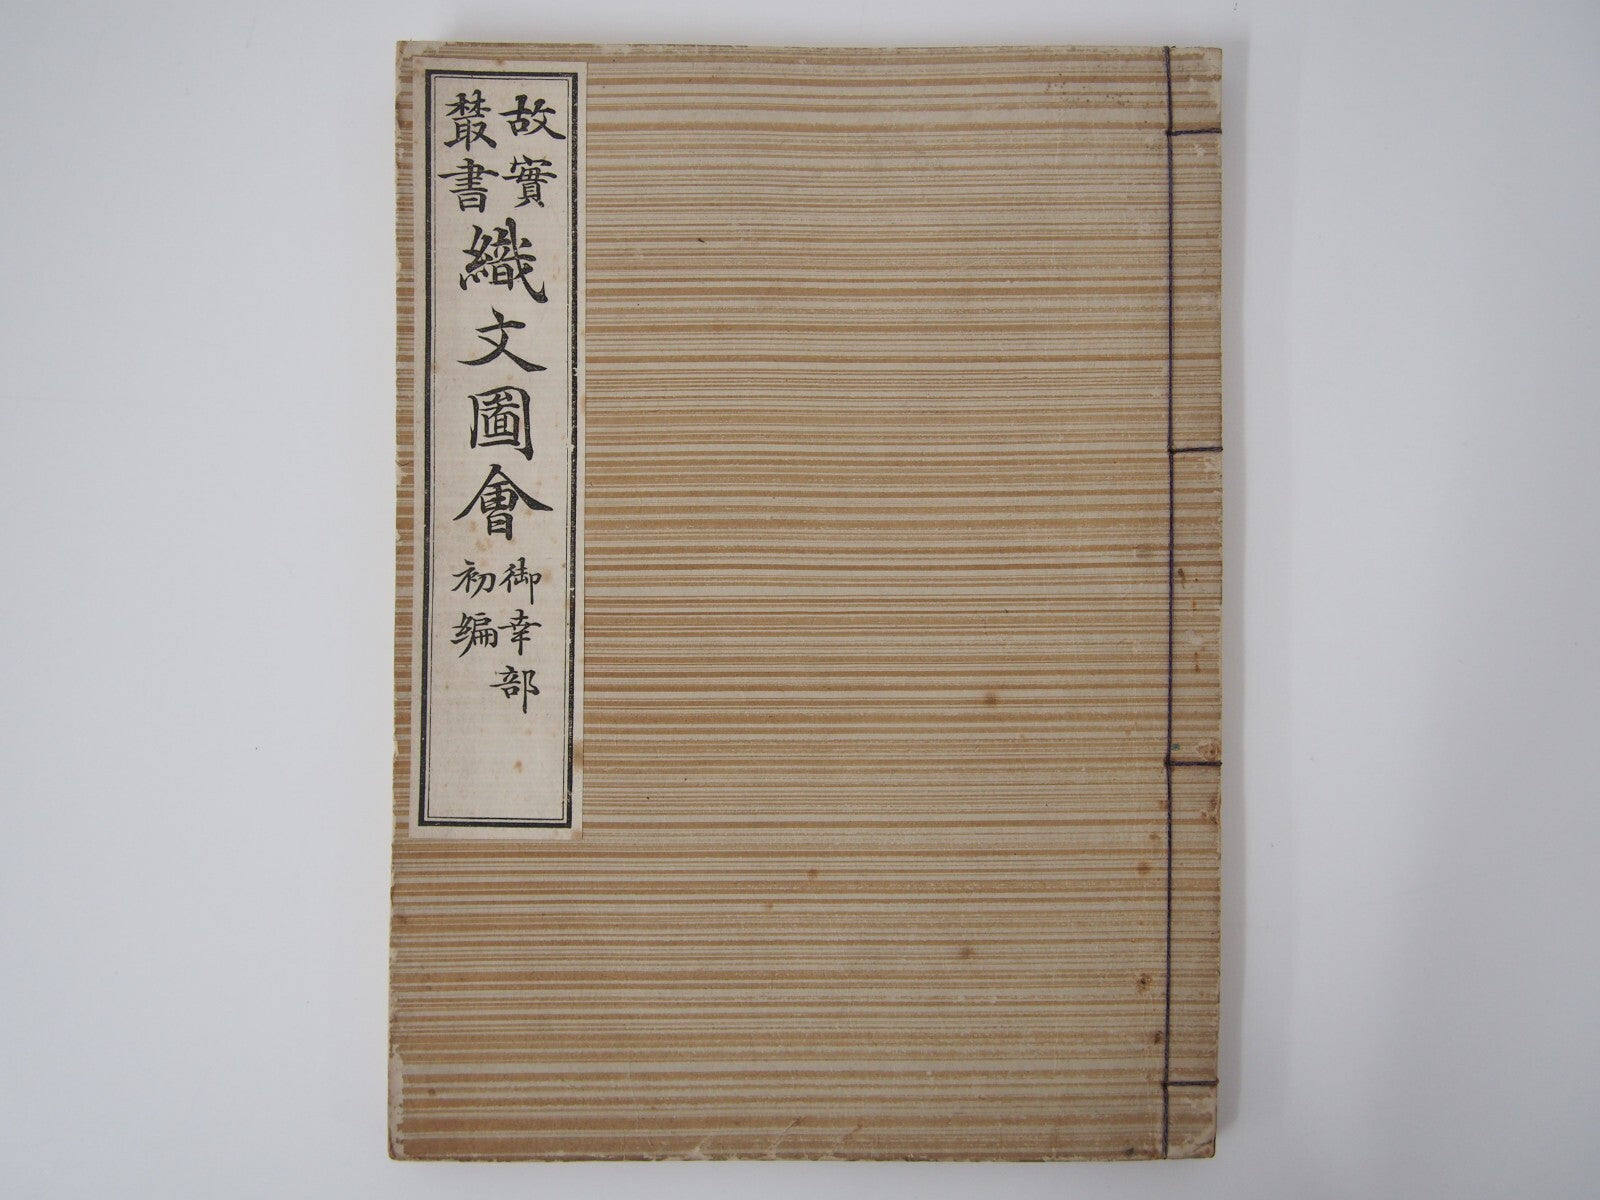 故實
叢書
織文圖會
御幸部
初編